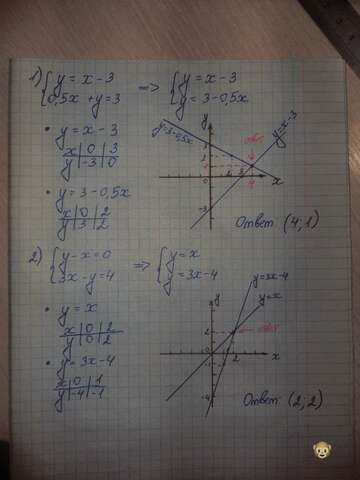 1) { y = x - 3 => { y = x - 3
0,5x + y = 3 y = 3 - 0,5x
• y = x - 3
x | 0 | 3
y | -3 | 0
• y = 3 - 0,5x
x | 0 | 2
y | 3 | 2
y=3-0,5x
y
y=x-3
3
1
0
1
3
4
x
-3
Ответ: (4; 1)
2) { y - x = 0 => { y = x
3x - y = 4 y = 3x - 4
• y = x
x | 0 | 2
y | 0 | 2
• y = 3x - 4
x | 0 | 1
y | -4 | -1
y
y=3x-4
y=x
2
0
2
x
-4
Ответ: (2; 2)